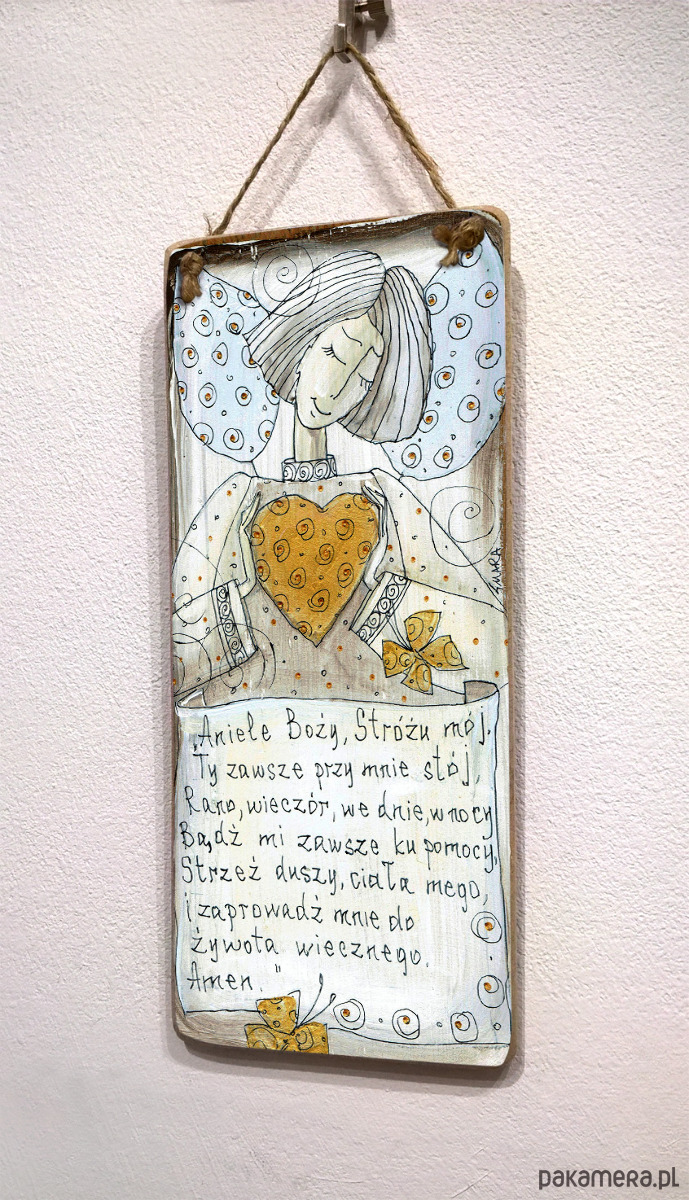 ŻMIRA
„Aniele Boży, Stróżu mój,
Ty zawsze przy mnie stój,
Rano, wieczór, we dnie, w nocy
Bądź mi zawsze ku pomocy,
Strzeż duszy, ciała mego,
i zaprowadź mnie do
żywota wiecznego.
Amen."
pakamera.pl